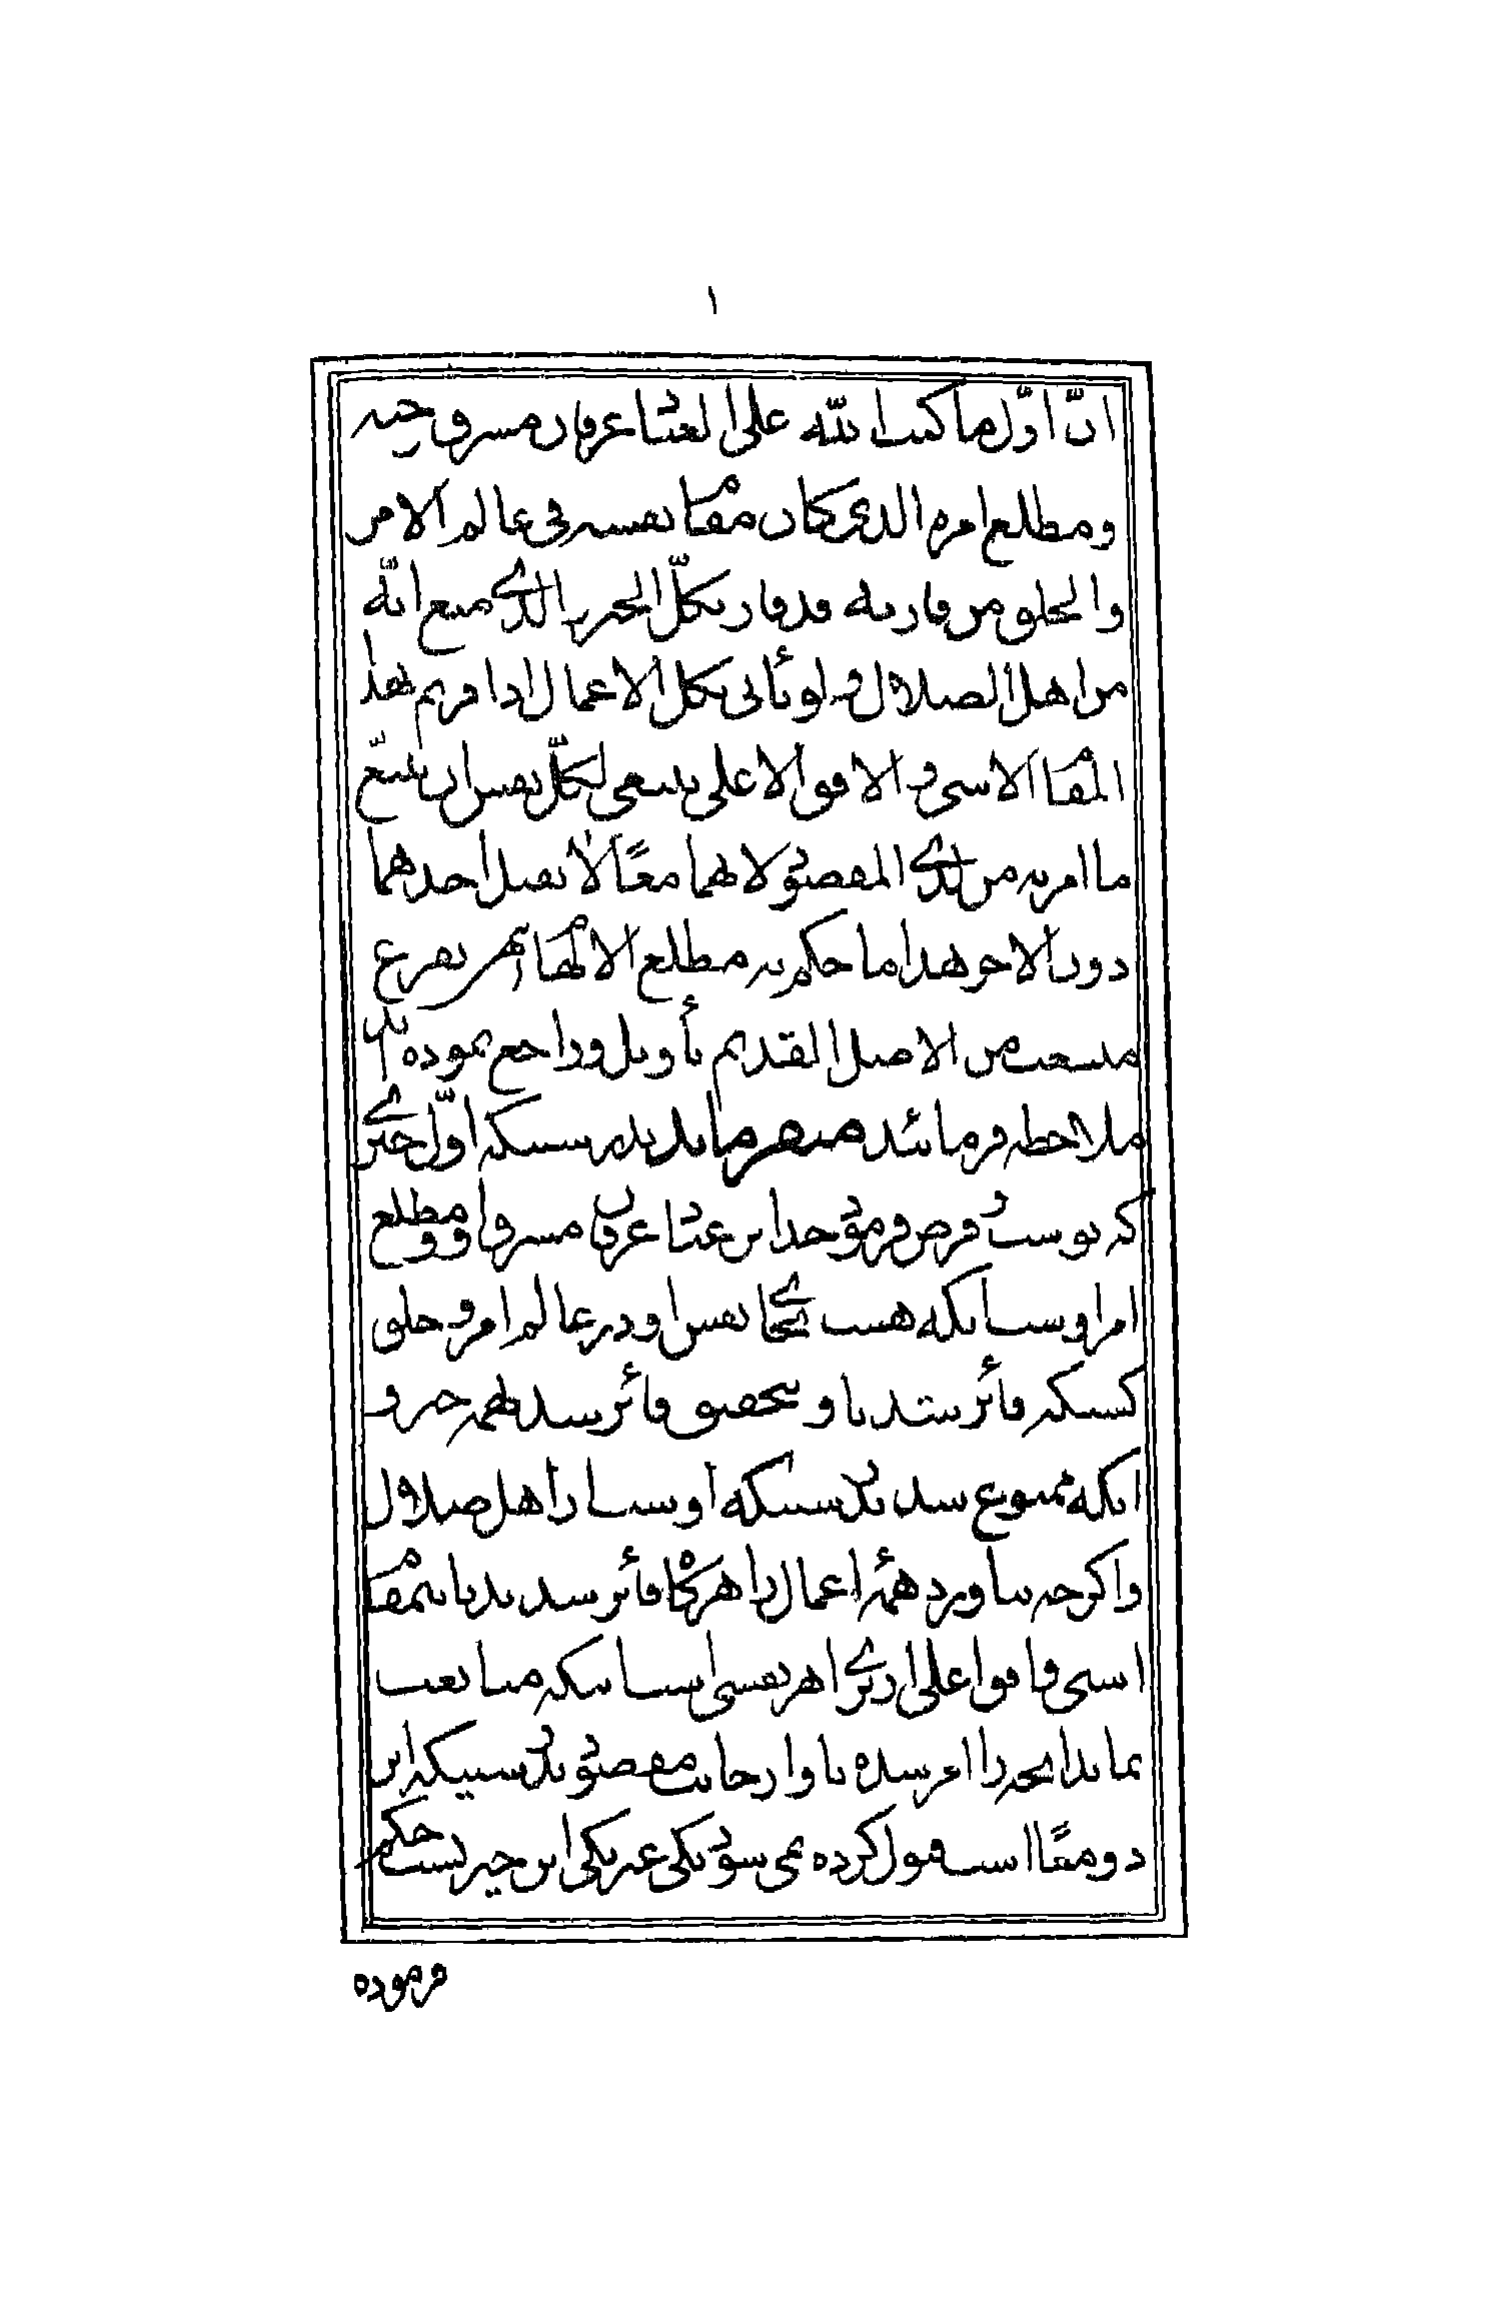 ١
انّ اوّل ما كتب الله على العباد عرفان مشرق وحيه
ومطلع امره الذى كان مقام نفسه فى عالم الامر
والخلق من فاز به قد فاز بكلّ الخير والذى منع انّه
من اهل الضلال و لو يأتى بكل الاعمال اذا فزتم بهذا
المقام الاسنى و الافق الاعلى ينبغى لكلّ نفس ان يتّبع
ما امر به من لدى المقصود لانهما معًا لا يقبل احدهما
دون الاخر هذا ما حكم به مطلع الالهام
منشعب من الاصل القديم تأويل و راجع نموده
ملاحظه فرمائند ميفرمايد بدرستيكه اوّل چيزى
كه نوشت و فرض فرمود خدا بر عباد عرفان مشرق و مطلع
امر اوست آنكه هست بجاى نفس او در عالم امر و خلق
كسيكه فائز شد باو بتحقيق فائز شد بهمه خير و
آنكه ممنوع شد بدرستيكه اوست از اهل ضلال
و اگر چه بياورد همهٔ اعمال را هرگاه فائز شديد باين مقام
اسنى و افق اعلى از براى هر نفسى است اينكه متابعت
نمايد آنچه را امر شده باو از جانب مقصود بدرستيكه اين
دو مقام است قبول كرده نمى شود يكى غير يكى اين چيزيست حكم
فرموده